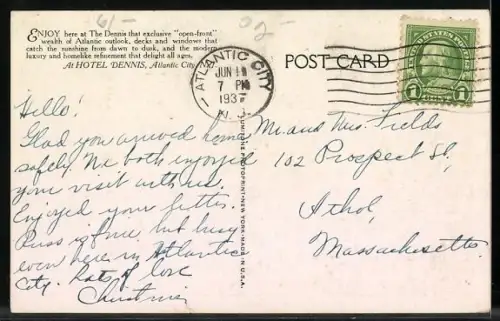 61-
02-
ENJOY here at The Dennis that exclusive "open-front"
wealth of Atlantic outlook, decks and windows that
catch the sunshine from dawn to dusk, and the modern
luxury and homelike refinement that delight all ages.
At HOTEL DENNIS, Atlantic City
POST CARD
ATLANTIC CITY
JUN
7 PM
193
N. J.
UNITED STATES POSTAGE
1 1
Hello!
Glad you arrived home
safely. We both enjoyed
your visit with us.
Enjoyed your letter.
Russ is fine but busy
even here in Atlantic
City. Lots of love
Christine
SUNTONE PHOTOPRINT-NEW YORK-MADE IN U.S.A.
Mr. and Mrs. Fields
102 Prospect St,
Athol,
Massachusetts.